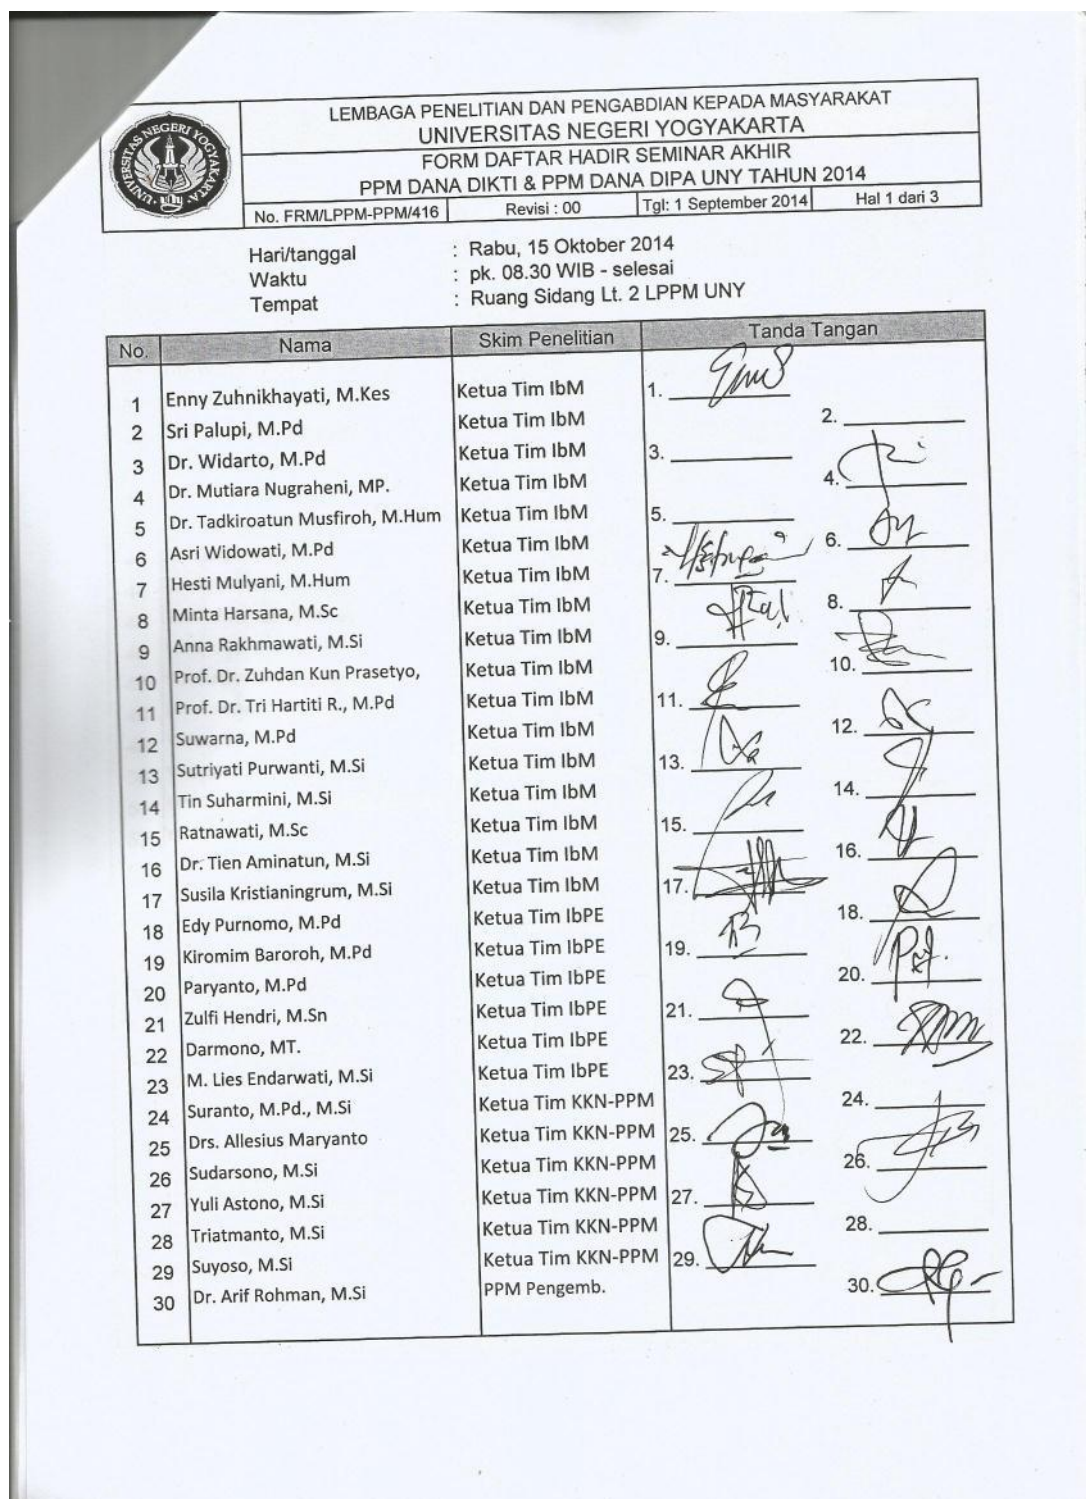 UNIVERSITAS NEGERI YOGYAKARTA
LEMBAGA PENELITIAN DAN PENGABDIAN KEPADA MASYARAKAT
UNIVERSITAS NEGERI YOGYAKARTA
FORM DAFTAR HADIR SEMINAR AKHIR
PPM DANA DIKTI & PPM DANA DIPA UNY TAHUN 2014
No. FRM/LPPM-PPM/416 Revisi : 00 Tgl: 1 September 2014 Hal 1 dari 3
Hari/tanggal : Rabu, 15 Oktober 2014
Waktu : pk. 08.30 WIB - selesai
Tempat : Ruang Sidang Lt. 2 LPPM UNY
No. Nama Skim Penelitian Tanda Tangan
1 Enny Zuhnikhayati, M.Kes Ketua Tim IbM 1.
2 Sri Palupi, M.Pd Ketua Tim IbM 2.
3 Dr. Widarto, M.Pd Ketua Tim IbM 3.
4 Dr. Mutiara Nugraheni, MP. Ketua Tim IbM 4.
5 Dr. Tadkiroatun Musfiroh, M.Hum Ketua Tim IbM 5.
6 Asri Widowati, M.Pd Ketua Tim IbM 6.
7 Hesti Mulyani, M.Hum Ketua Tim IbM 7.
8 Minta Harsana, M.Sc Ketua Tim IbM 8.
9 Anna Rakhmawati, M.Si Ketua Tim IbM 9.
10 Prof. Dr. Zuhdan Kun Prasetyo, Ketua Tim IbM 10.
11 Prof. Dr. Tri Hartiti R., M.Pd Ketua Tim IbM 11.
12 Suwarna, M.Pd Ketua Tim IbM 12.
13 Sutriyati Purwanti, M.Si Ketua Tim IbM 13.
14 Tin Suharmini, M.Si Ketua Tim IbM 14.
15 Ratnawati, M.Sc Ketua Tim IbM 15.
16 Dr. Tien Aminatun, M.Si Ketua Tim IbM 16.
17 Susila Kristianingrum, M.Si Ketua Tim IbM 17.
18 Edy Purnomo, M.Pd Ketua Tim IbPE 18.
19 Kiromim Baroroh, M.Pd Ketua Tim IbPE 19.
20 Paryanto, M.Pd Ketua Tim IbPE 20.
21 Zulfi Hendri, M.Sn Ketua Tim IbPE 21.
22 Darmono, MT. Ketua Tim IbPE 22.
23 M. Lies Endarwati, M.Si Ketua Tim IbPE 23.
24 Suranto, M.Pd., M.Si Ketua Tim KKN-PPM 24.
25 Drs. Allesius Maryanto Ketua Tim KKN-PPM 25.
26 Sudarsono, M.Si Ketua Tim KKN-PPM 26.
27 Yuli Astono, M.Si Ketua Tim KKN-PPM 27.
28 Triatmanto, M.Si Ketua Tim KKN-PPM 28.
29 Suyoso, M.Si Ketua Tim KKN-PPM 29.
30 Dr. Arif Rohman, M.Si PPM Pengemb. 30.